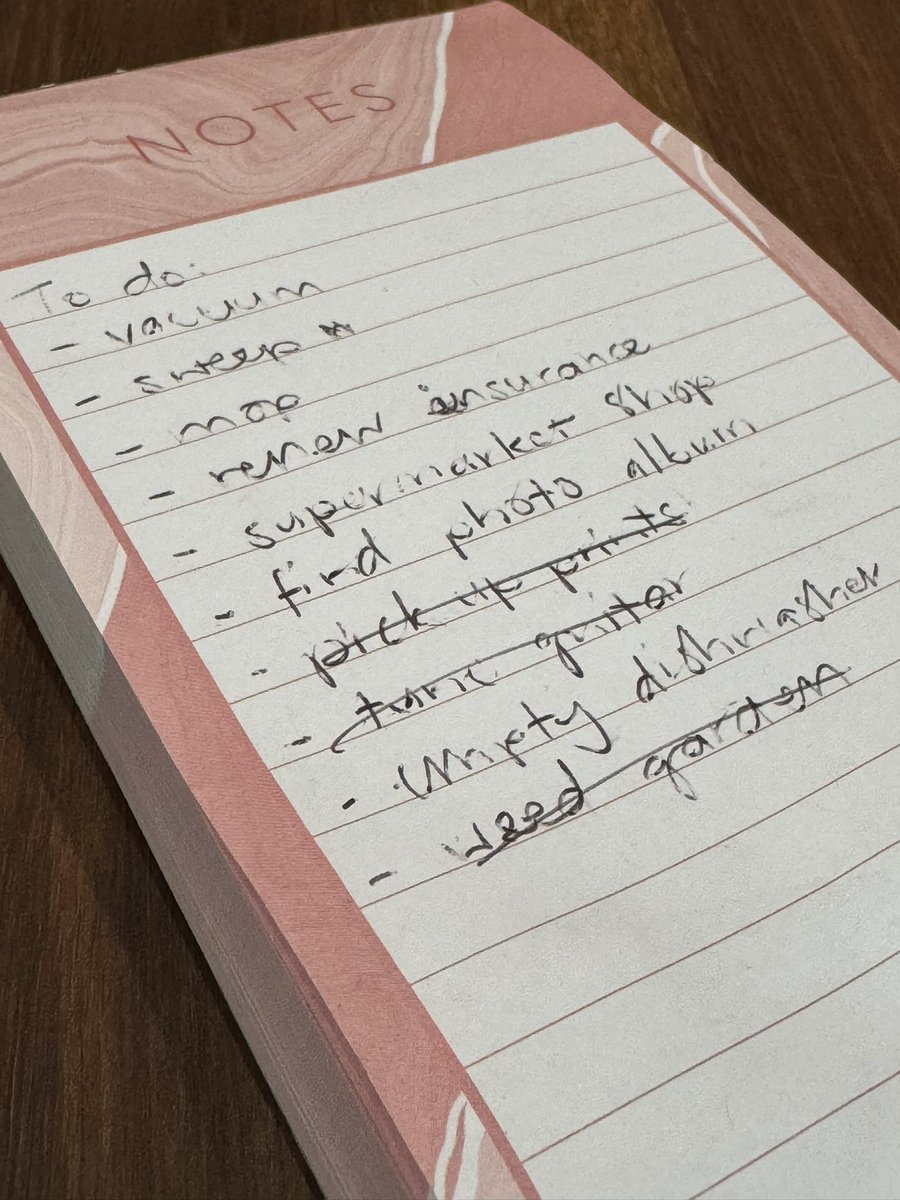 NOTES
To do:
- vacuum
- sweep
- mop
- renew insurance
- supermarket shop
- find photo album
- pick up prints
- tune guitar
- empty dishwasher
- weed garden